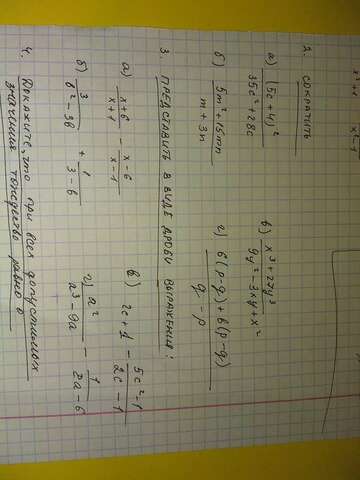 x+1 x²-1
2. СОКРАТИТЬ
а) (5c+4)² / 35c²+28c
в) x³+27y³ / 9y²-3xy+x²
б) 5m²+15mn / m+3n
г) 6(p-q)+6(p-q) / q-p
3. ПРЕДСТАВИТЬ В ВИДЕ ДРОБИ ВЫРАЖЕНИЯ:
а) x+6 / x+1 - x-6 / x-1
в) 2c+1 - 5c²-1 / 2c-1
б) 3 / b²-3b + 1 / 3-b
г) a² / a³-9a - 1 / 2a-6
4. Докажите, что при всех допустимых
значениях тождество равно 0